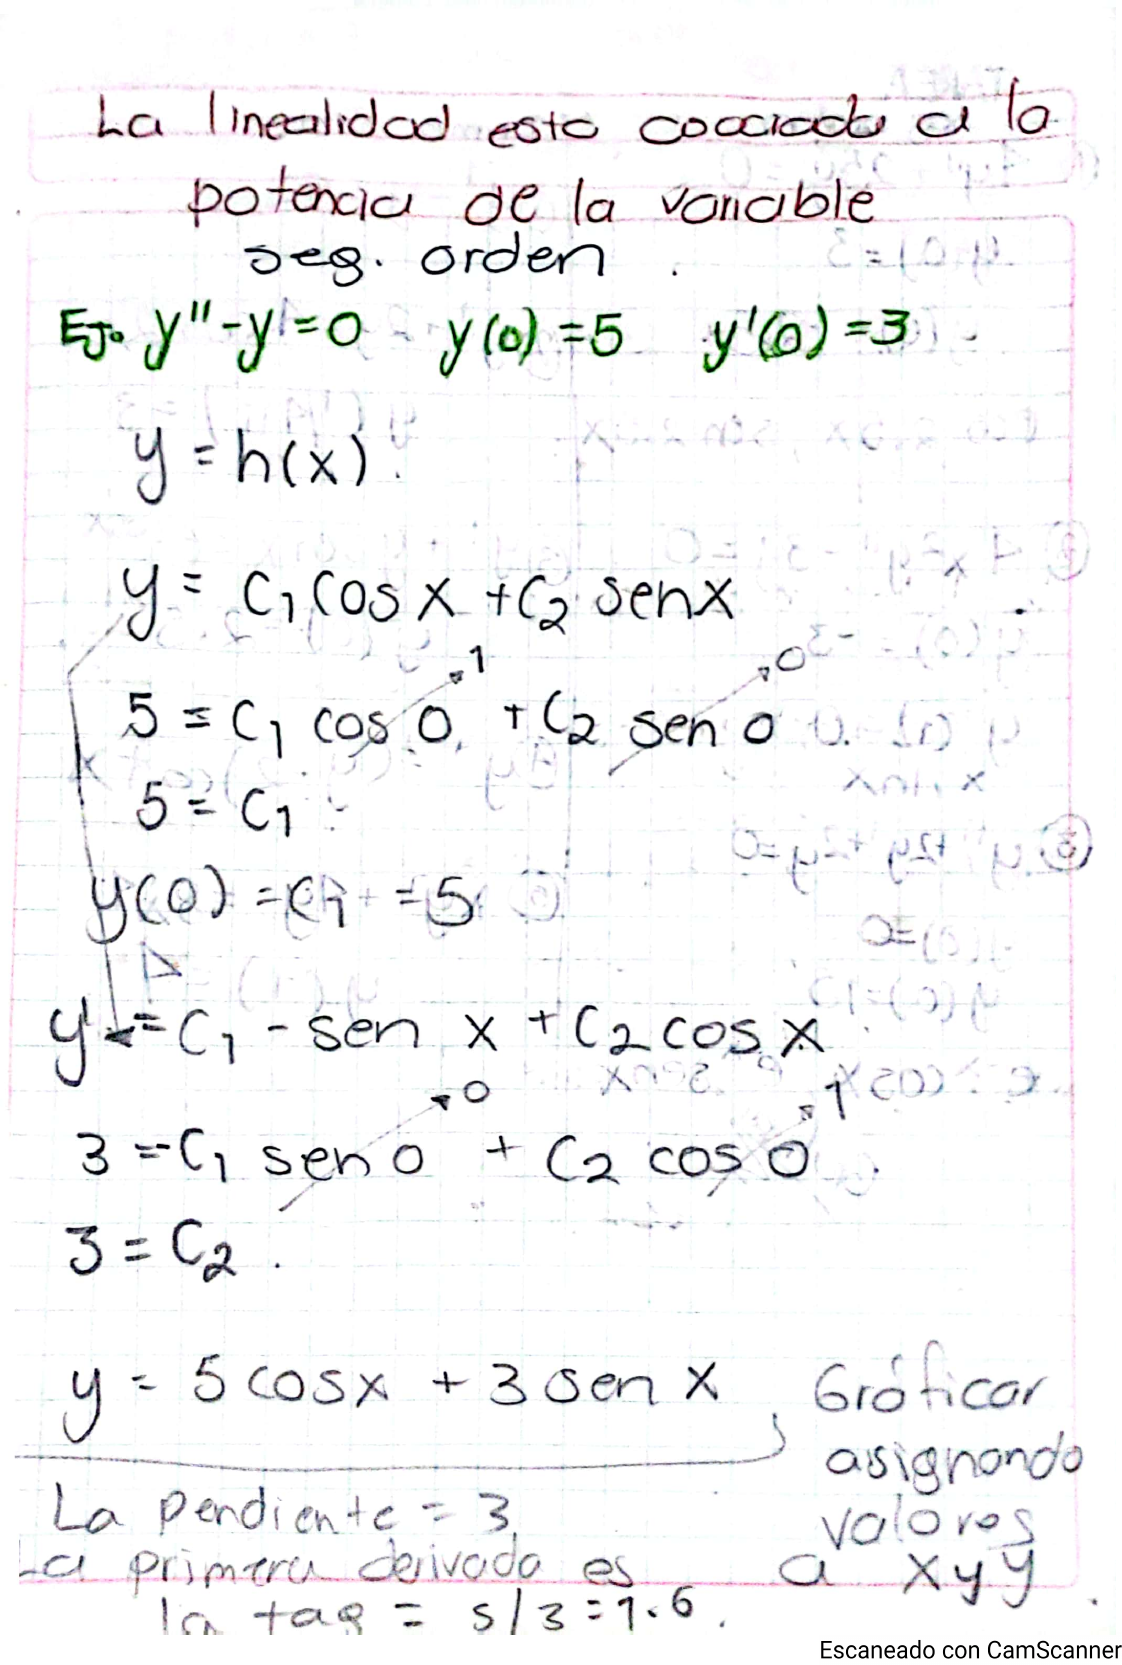 La linealidad esta coociada a la
potencia de la variable
seg. orden.
EJ. y" - y' = 0 y(0) = 5 y'(0) = 3
y = h(x).
y = C1 cos x + C2 sen x
1 0
5 = C1 cos 0 + C2 sen 0
5 = C1
y(0) = C1 = 5
y' = C1 - sen x + C2 cos x
0 1
3 = -C1 sen 0 + C2 cos 0
3 = C2.
y = 5 cos x + 3 sen x
Gráficar
asignando
valores
a x y y.
La pendiente = 3
La primera derivada es
la tag = 5/3 = 1.6.
Escaneado con CamScanner